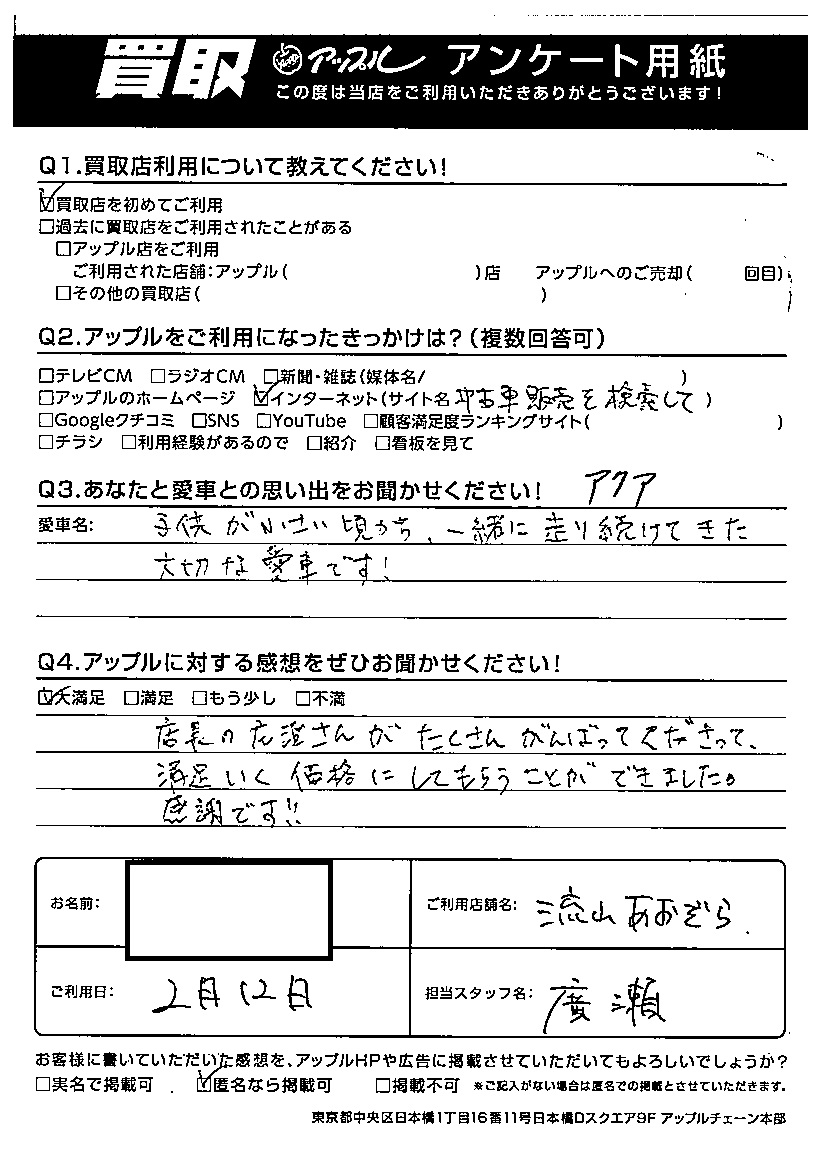 買取 アップル アンケート用紙
この度は当店をご利用いただきありがとうございます!
Q1.買取店利用について教えてください!
☑買取店を初めてご利用
□過去に買取店をご利用されたことがある
□アップル店をご利用
ご利用された店舗:アップル( )店 アップルへのご売却( 回目)
□その他の買取店( )
Q2.アップルをご利用になったきっかけは?(複数回答可)
□テレビCM □ラジオCM □新聞・雑誌(媒体名/ )
□アップルのホームページ ☑インターネット(サイト名 中古車販売を検索して )
□Googleクチコミ □SNS □YouTube □顧客満足度ランキングサイト( )
□チラシ □利用経験があるので □紹介 □看板を見て
Q3.あなたと愛車との思い出をお聞かせください! アクア
愛車名: 子供が小さい頃から、一緒に走り続けてきた
大切な愛車です!
Q4.アップルに対する感想をぜひお聞かせください!
☑大満足 □満足 □もう少し □不満
店長の広澄さんがたくさんがんばってくださって、
満足いく価格にしてもらうことができました。
感謝です!!
お名前: ご利用店舗名: 流山あおぞら.
ご利用日: 2月12日 担当スタッフ名: 廣瀬
お客様に書いていただいた感想を、アップルHPや広告に掲載させていただいてもよろしいでしょうか?
□実名で掲載可 ☑匿名なら掲載可 □掲載不可 ※ご記入がない場合は匿名での掲載とさせていただきます。
東京都中央区日本橋1丁目16番11号日本橋Dスクエア9F アップルチェーン本部